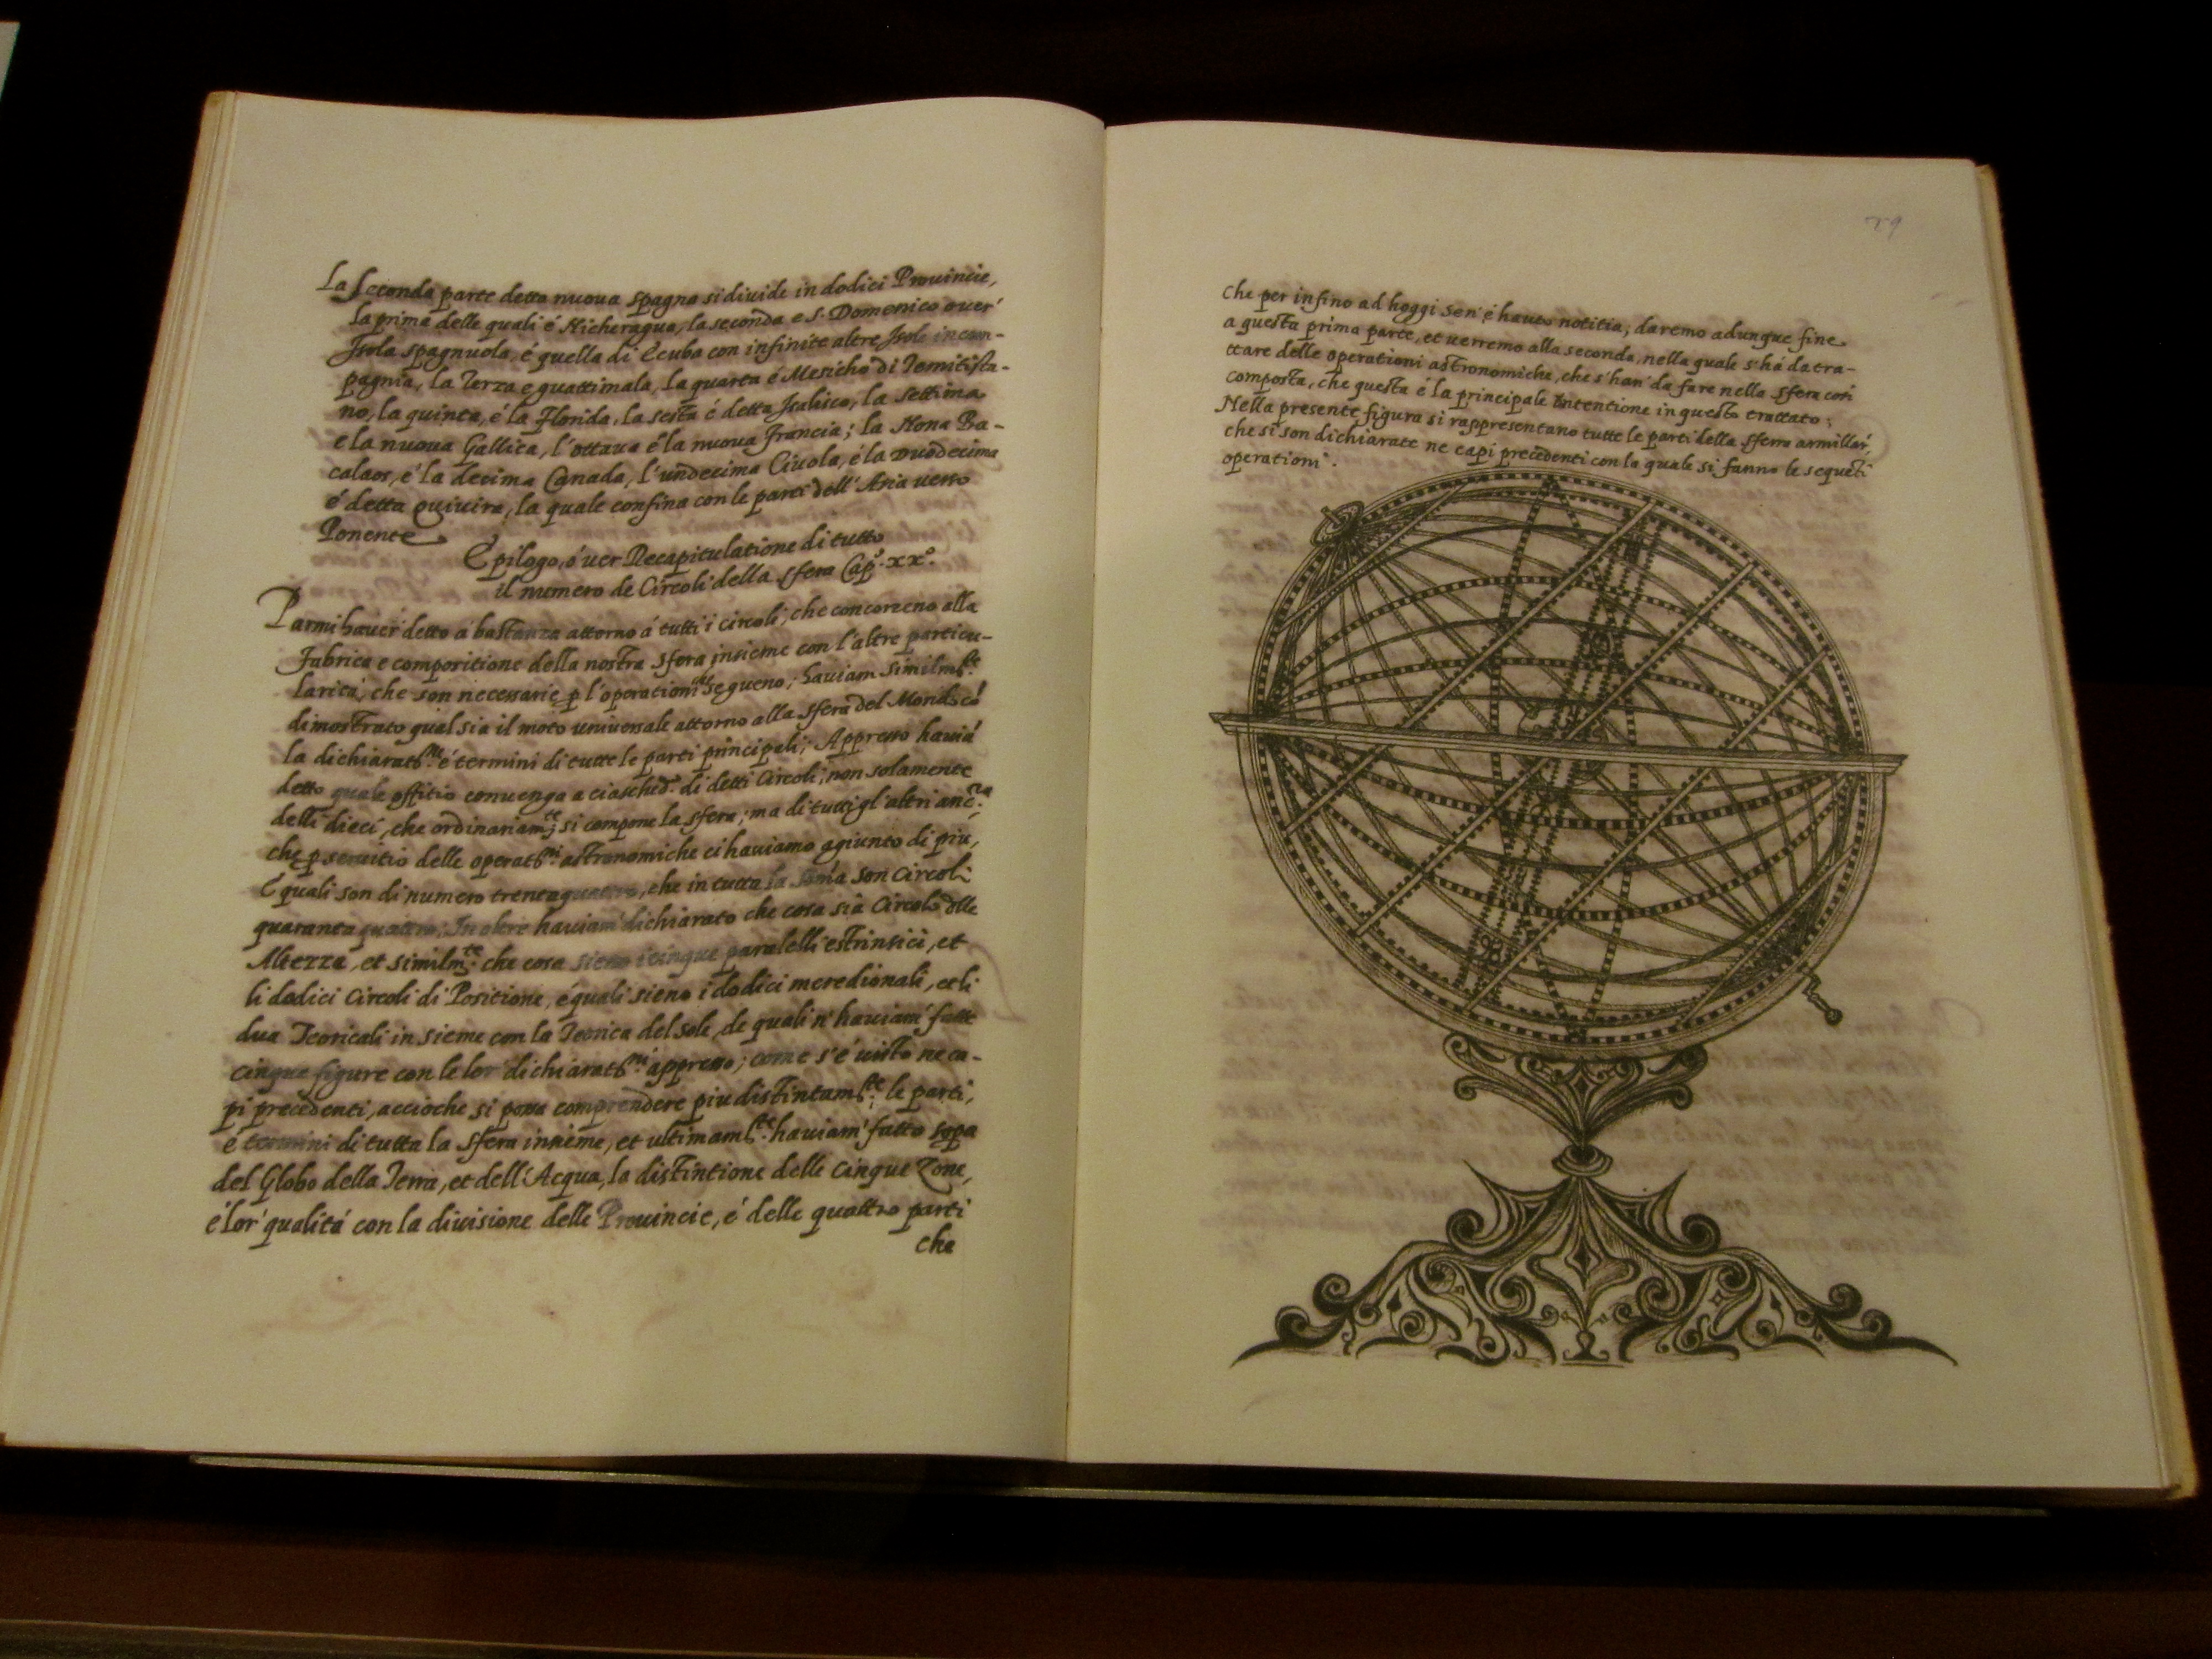 La Seconda parte detta nuova Spagna si divide in dodici Prouincie,
la prima delle quali é Nicheragua, la seconda e S. Domenico over'
Isola spagnuola, é quella di Ecuba con infinite altre Isole in com-
pagnia, la Terza e guattimala, la quarta é Mesicho di Temitista-
no, la quinta, é la Florida, la sesta é detta Isalisco, la settima
e la nuoua Gallica, l'ottaua é la nuoua Francia; la Nona Ba-
calaos, é la decima Canada, l'undecima Ciuola, é la duodecima
é detta Quiuira, la quale confina con le parti dell'Asia uerso
Ponente
Epilogo, ó uer Recapitulatione di tutto
il numero de Circoli della sfera Cap.º xxº.
Parmi hauer' detto á bastanza attorno á tutti i circoli, che concorreno alla
fabrica e compositione della nostra sfera insieme con l'altre particu-
larita, che son necessarie p l'operationi che segueno; hauiam similmte
dimostrato qual sia il moto uniuersale attorno alla sfera del Mondo có
la dichiaratne é termini di tutte le parti principali; Appresso hauiá
detto quale offitio conuenga a ciasched. di detti Circoli; non solamente
delli dieci, che ordinariamte si compone la sfera; ma di tutti gl'altri anc.ra
che p seruitio delle operatni astronomiche ci hauiamo agiunto di piu,
E quali son di numero trentaquattro, che in tutta la soma son Circoli
quaranta quattro; In oltre hauiam' dichiarato che cosa sia Circolo dlle
Altezza, et similmte che cosa sieno i cinque paralelli estrinsici, et
li dodici circoli di Positione, é quali sieno i dodici meredionali, et li
dua Teoricali in sieme con la Teorica del sole, de quali n'hauiam' fatte
cinque figure con le lor dichiaratni appresso; come s'é uisto ne ca-
pi precedenti, accioche si possa comprendere piu distintamte le parti,
é termini di tutta la sfera insieme, et ultimamte hauiam' fatto sopa
del Globo della Terra, et dell'Acqua, la distintione delle Cinque Zone,
é lor' qualitá con la diuisione delle Prouincie, é delle quattro parti
che
59
che per infino ad hoggi sen' é hauto notitia; daremo adunque fine
a questa prima parte, et uerremo alla seconda, nella quale s'há da tra-
ttare delle operationi astronomiche, che s'han' da fare nella sfera cosi
composta, che questa é la principale Intentione in questo trattato;
Nella presente figura si rappresentano tutte le parti della sferra armillar',
che si son dichiarate ne capi precedenti con la quale si fanno le sequeti
operationi.